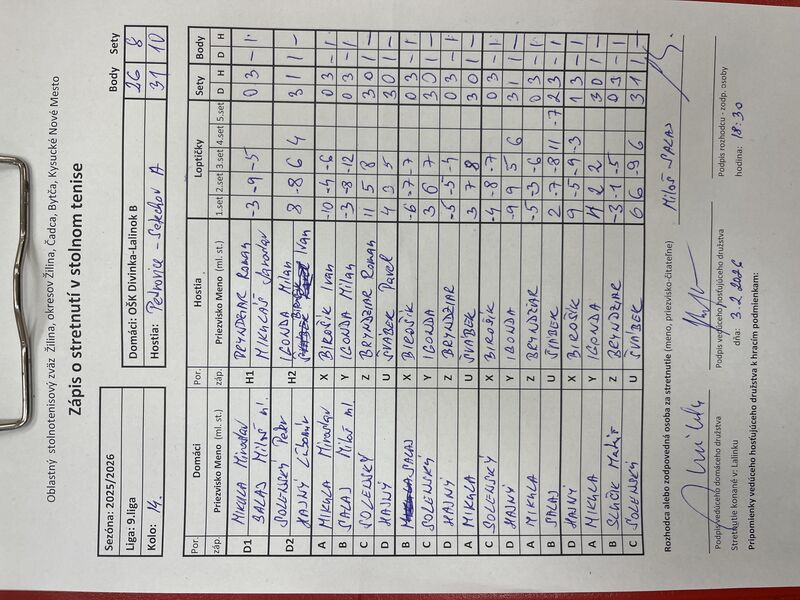 Oblastný stolnotenisový zväz Žilina, okresov Žilina, Čadca, Bytča, Kysucké Nové Mesto
Zápis o stretnutí v stolnom tenise
Sezóna: 2025/2026
Liga: 9.liga
Kolo: 14.
Body Sety
Domáci: OŠK Divinka-Lalinok B 26 8
Hostia: Petrovice - Setechov A 31 10
Por. Domáci Por. Hostia Loptičky Sety Body
záp. Priezvisko Meno (ml. st.) záp. Priezvisko Meno (ml. st.) 1.set 2.set 3.set 4.set 5.set D H D H
D1 MIKULA Miroslav H1 BRYNDZIAR Roman -3 -9 -5 0 3 - 1
SALAJ Miloš ml. MIKULÁŠ Jaroslav
D2 SOLENSKÝ Peter H2 IGONDA Milan 8 -8 6 4 3 1 1 -
HAJNÝ Ľubomír BIROŠÍK Ivan
A MIKULA Miroslav X BIROŠÍK Ivan -10 -4 -6 0 3 - 1
B SALAJ Miloš ml. Y IGONDA Milan -3 -8 -12 0 3 - 1
C SOLENSKÝ Z BRYNDZIAR Roman 11 5 8 3 0 1 -
D HAJNÝ U ŠVÁBEK Pavel 4 9 5 3 0 1 -
B SALAJ X BIROŠÍK -6 -7 -7 0 3 - 1
C SOLENSKÝ Y IGONDA 3 6 7 3 0 1 -
D HAJNÝ Z BRYNDZIAR -5 -5 -4 0 3 - 1
A MIKULA U ŠVÁBEK 3 7 8 3 0 1 -
C SOLENSKÝ X BIROŠÍK -4 -8 -7 0 3 - 1
D HAJNÝ Y IGONDA -9 9 5 6 3 1 1 -
A MIKULA Z BRYNDZIAR -5 -3 -6 0 3 - 1
B SALAJ U ŠVÁBEK 2 -7 -8 11 -7 2 3 - 1
D HAJNÝ X BIROŠÍK 9 -5 -9 -3 1 3 - 1
A MIKULA Y IGONDA 4 2 2 3 0 1 -
B Z BRYNDZIAR -3 -1 -5 0 3 - 1
C SOLENSKÝ U ŠVÁBEK 6 6 -9 6 3 1 1 -
Rozhodca alebo zodpovedná osoba za stretnutie (meno, priezvisko-čitateľne) MILOŠ SALAJ
Podpis vedúceho domáceho družstva Podpis vedúceho hosťujúceho družstva Podpis rozhodcu - zodp. osoby
Stretnutie konané v: Lalinku dňa: 3.2.2026 hodina: 18:30
Pripomienky vedúceho hosťujúceho družstva k hracím podmienkam: